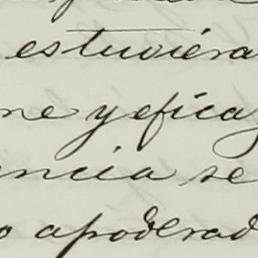 estuviera
ne y efica
ncia se
o apoderad